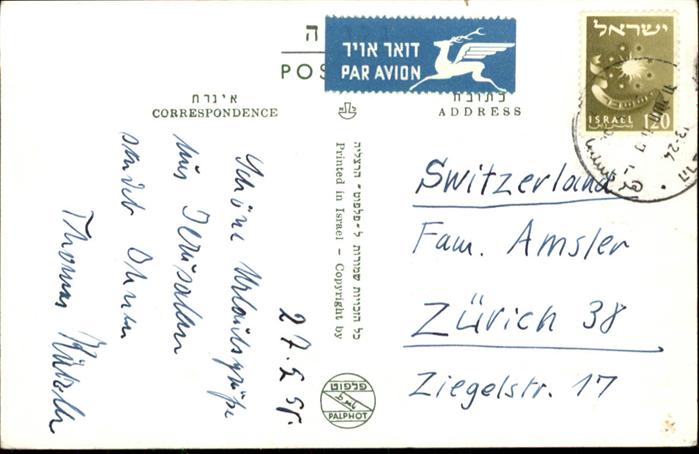 דואר אויר
PAR AVION
ישראל
ISRAEL 120
אינרת
CORRESPONDENCE
כתובת
ADDRESS
27.5.
Schöne Urlaubsgrüße
aus Jerusalem
sendet Ihnen
Thomas
כל הזכויות שמורות ל-פלפוט - הרצליה
Printed in Israel - Copyright by
פלפוט
PALPHOT
Switzerland
Fam. Amsler
Zürich 38
Ziegelstr. 17